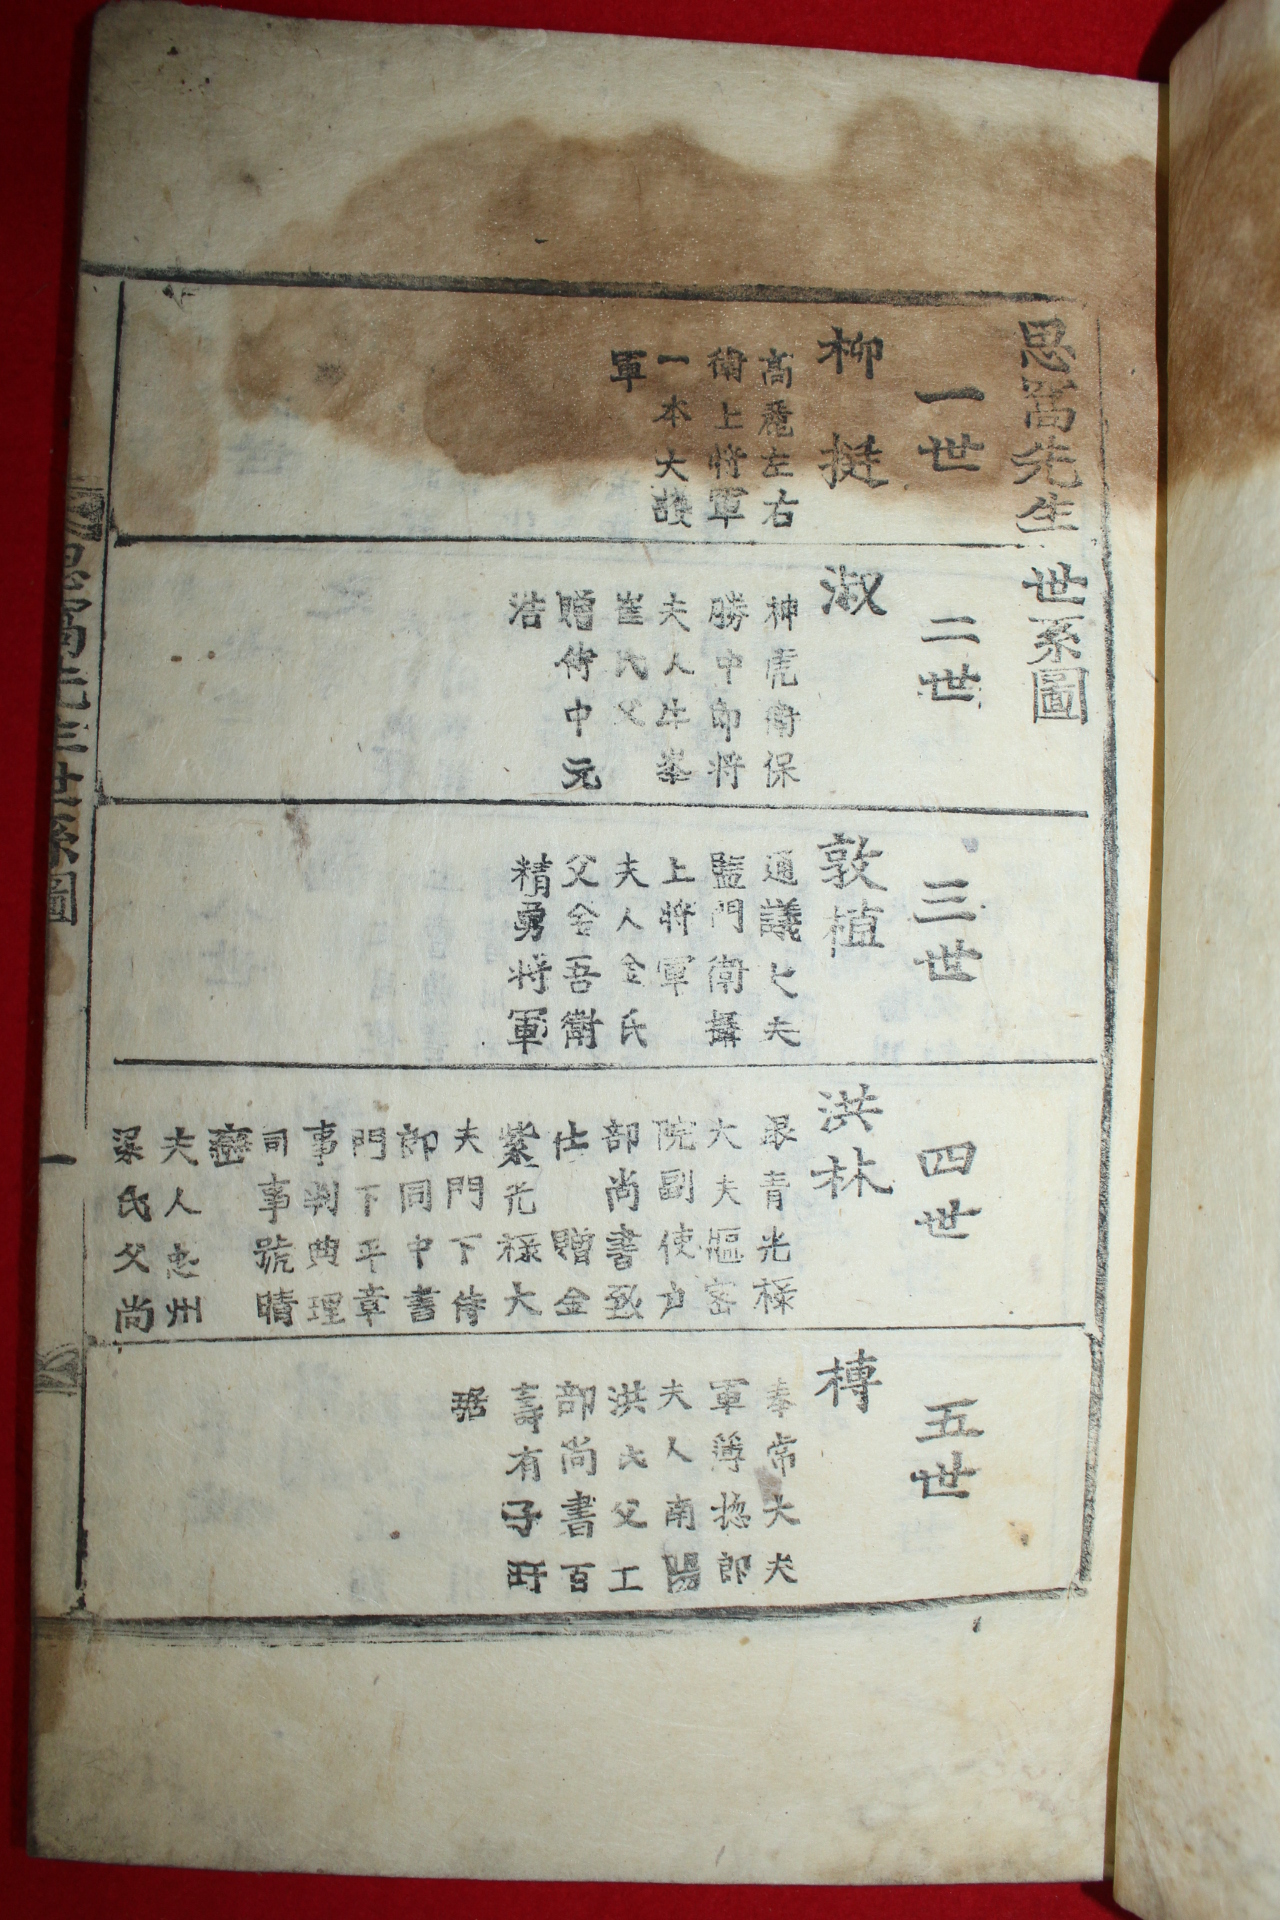 思窩先生世系圖
一世
柳挺
高麗左右
衛上將軍
一本大護
軍
二世
淑
神虎衛保
勝中郎將
夫人牛峯
崔氏父
贈侍中元
浩
三世
敦植
通議大夫
監門衛攝
上將軍
夫人金氏
父金吾衛
精勇將軍
四世
洪林
青光祿
大夫樞密
院副使户
部尚書致
仕 贈金
紫光祿大
夫門下侍
郎同中書
門下平章
事判典理
司事號晴
夫人忠州
梁氏父尚
五世
榑
奉常大夫
軍簿捴郎
夫人南陽
洪氏父工
部尚書百
壽有子玕
琚
思窩先生世系圖
一